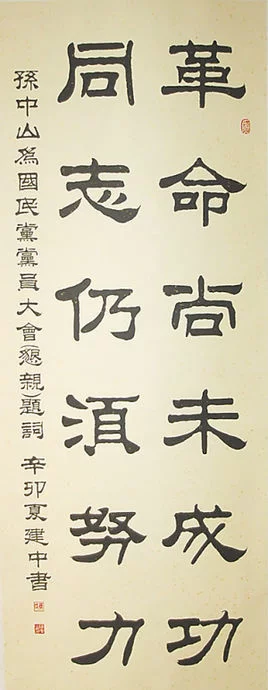 革命尚未成功
同志仍須努力
孫中山為國民黨黨員大會(懇親)題詞 辛卯夏建中書